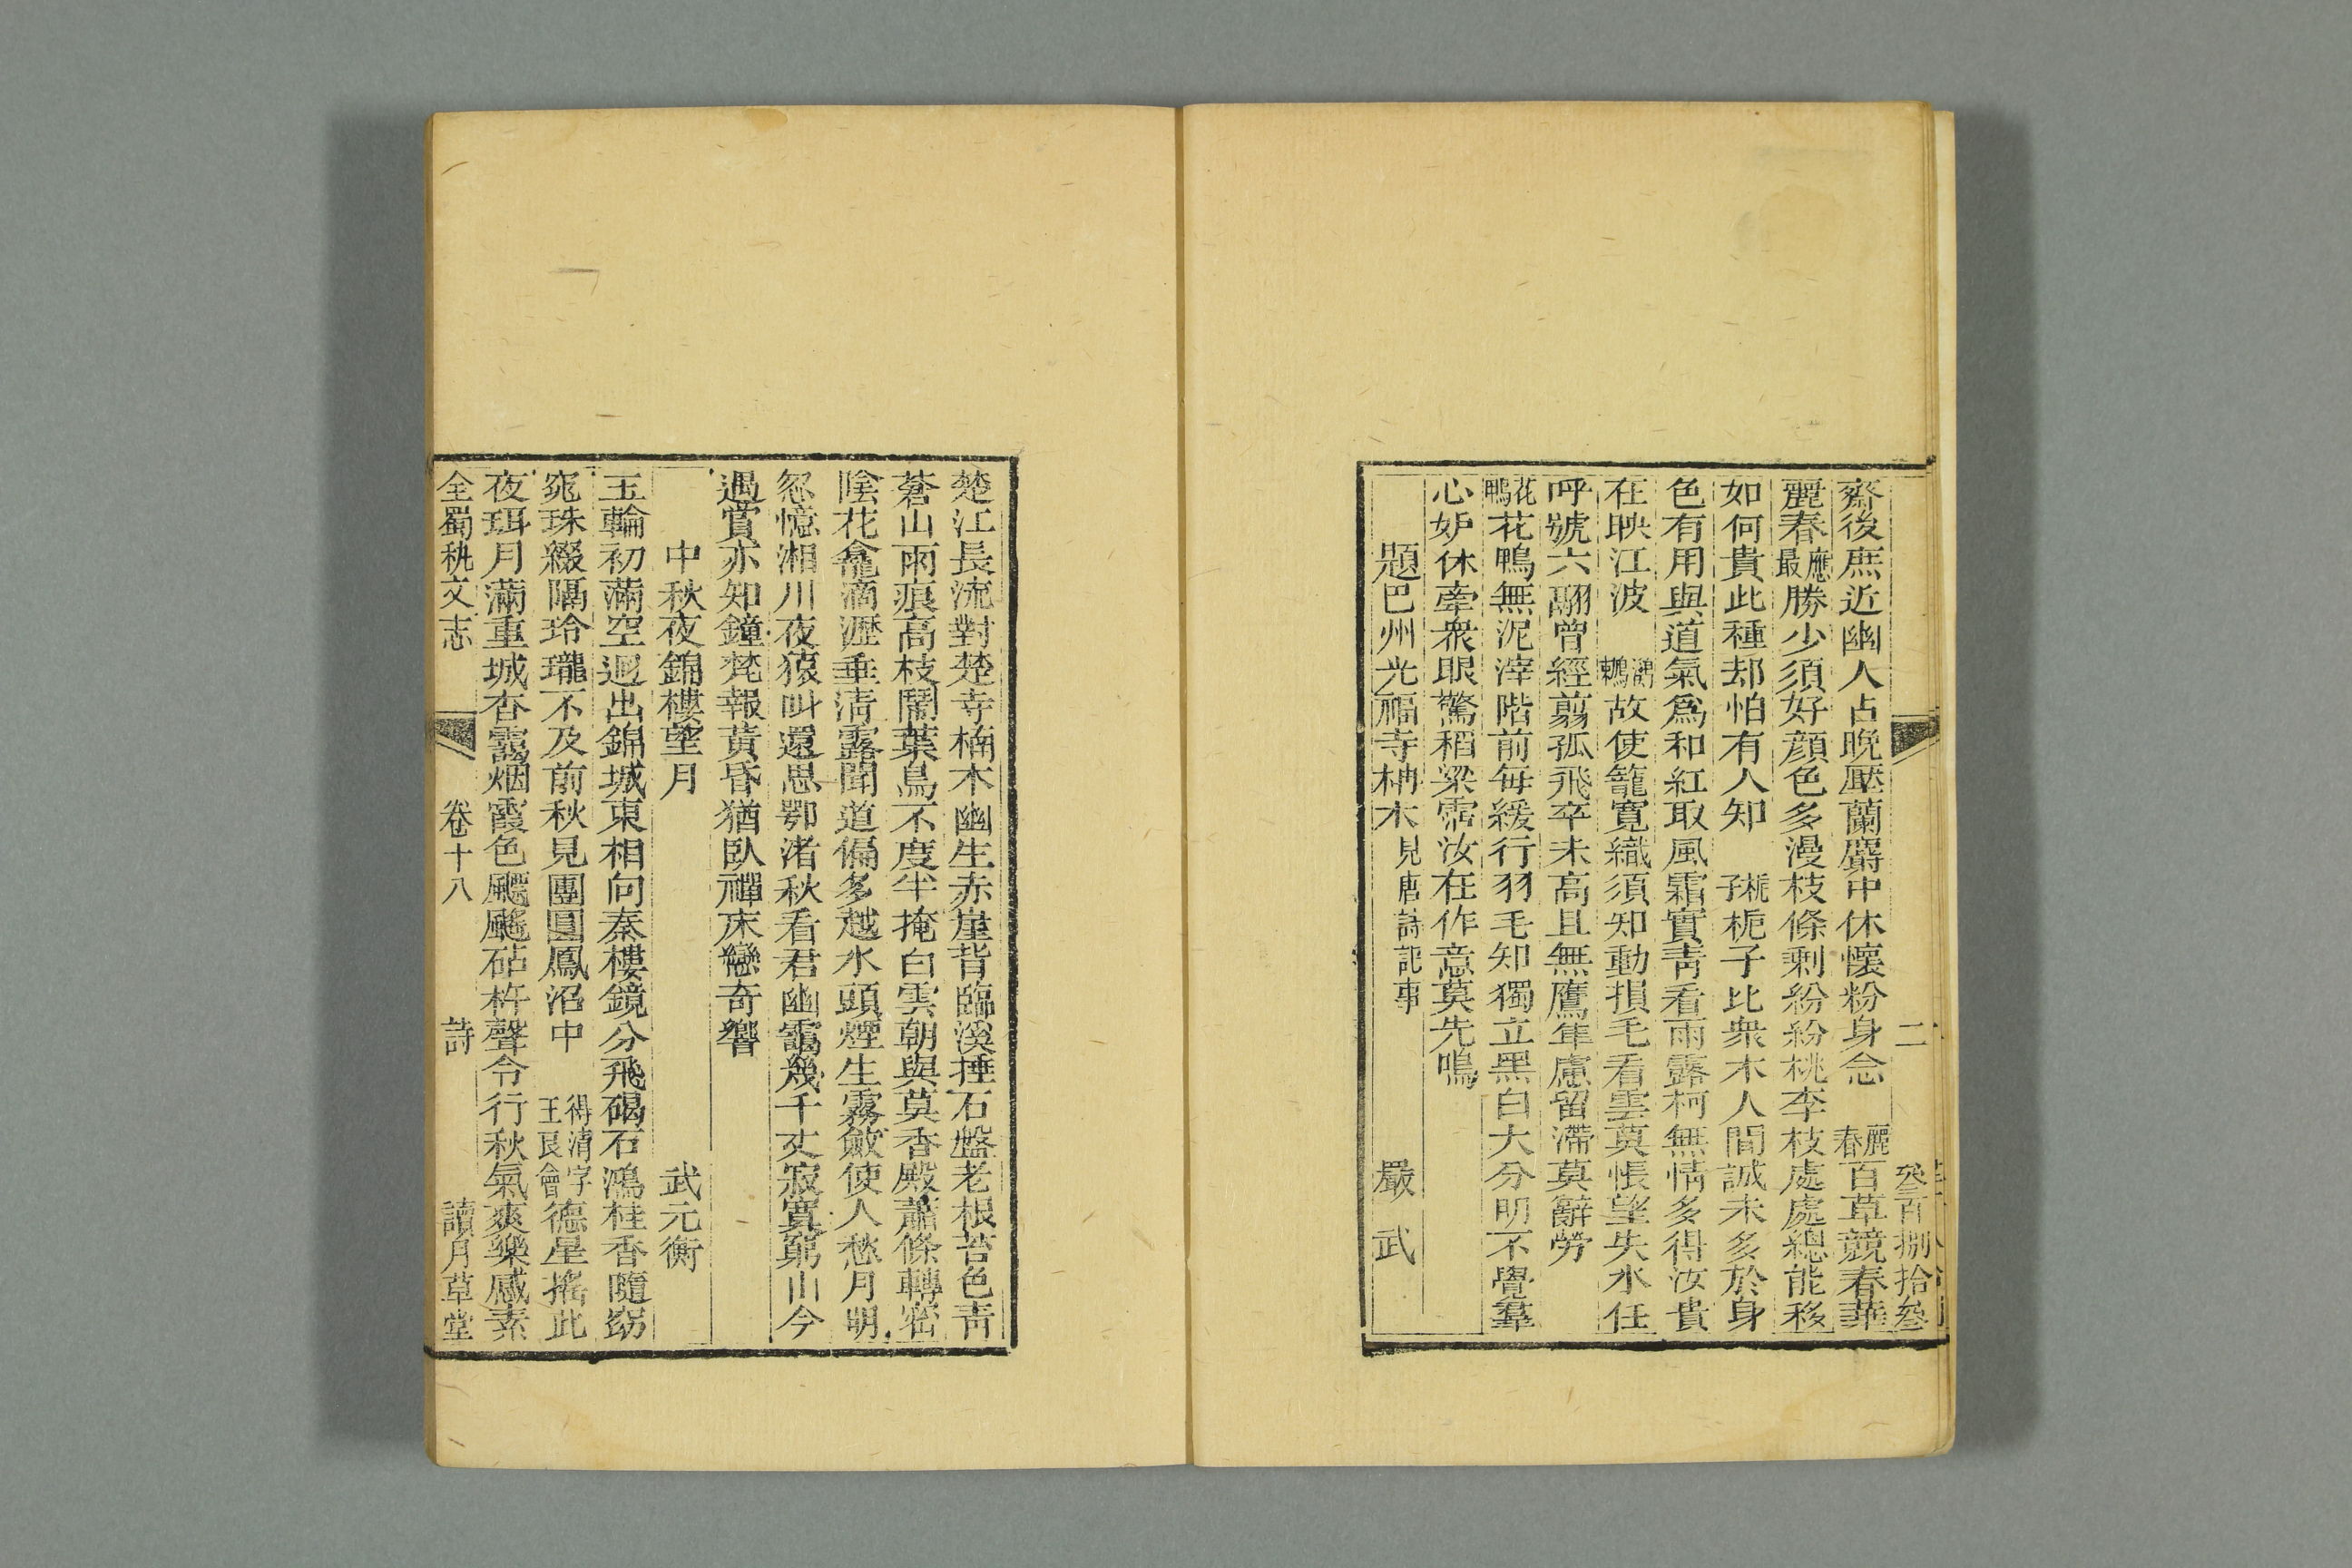 二 百捌拾叁
齋後庶近幽人占晩壓蘭麝中休懷粉身念 麗春 百草競春華
麗春應最勝少須好顔色多漫枝條剩紛紛桃李枝處處總能移
如何貴此種却怕有人知 梔子 梔子比衆木人間誠未多於身
色有用與道氣爲和紅取風霜實靑看雨露柯無情多得汝貴
在映江波 鸂鶒 故使籠寬織須知動損毛看雲莫悵望失水任
呼號六翮曾經翦孤飛卒未高且無鷹隼慮留滯莫辭勞
花鴨 花鴨無泥滓階前每緩行羽毛知獨立黑白大分明不覺羣
心妒休牽衆眼驚稻粱霑汝在作意莫先鳴
題巴州光福寺柟木 見唐詩記事 嚴武
楚江長流對楚寺楠木幽生赤崖背臨溪揷石盤老根苔色靑
蒼山雨痕高枝鬧葉鳥不度半掩白雲朝與莫香殿蕭條轉密
陰花龕滴瀝垂淸露聞道偏多越水頭煙生霧斂使人愁月明
忽憶湘川夜猿叫還思鄂渚秋看君幽靄幾千丈寂寞窮山今
遇賞亦知鐘梵報黃昏猶臥禪床戀奇響
中秋夜錦樓望月 武元衡
玉輪初滿空迥出錦城東相向秦樓鏡分飛碣石鴻桂香隨窈
窕珠綴隔玲瓏不及前秋見團圓鳳沼中 得淸字王良會 德星搖此
夜珥月滿重城杳靄烟霞色飃颻砧杵聲令行秋氣爽樂感素
全蜀秇文志 卷十八 詩 讀月草堂